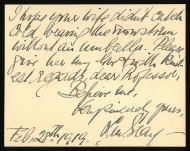 I hope your wife didn't catch
cold during the snowstorm
without an umbrella. Please
give her my best & kind
est regards, dear Professor,
Believe me,
Very sincerely yours,
Feb. 25th, 1919.